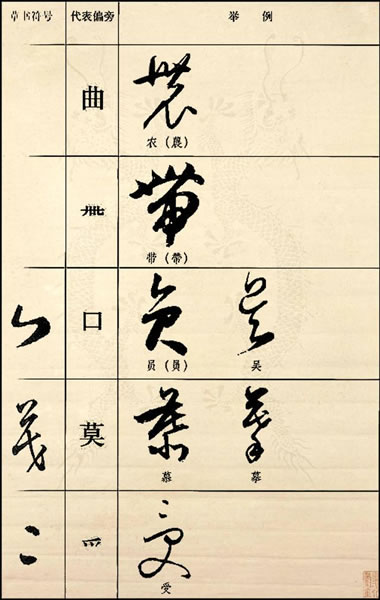 草书符号 代表偏旁 举例
曲
农（農）
带（帶）
口
员（員） 吴
莫
慕 摹
受